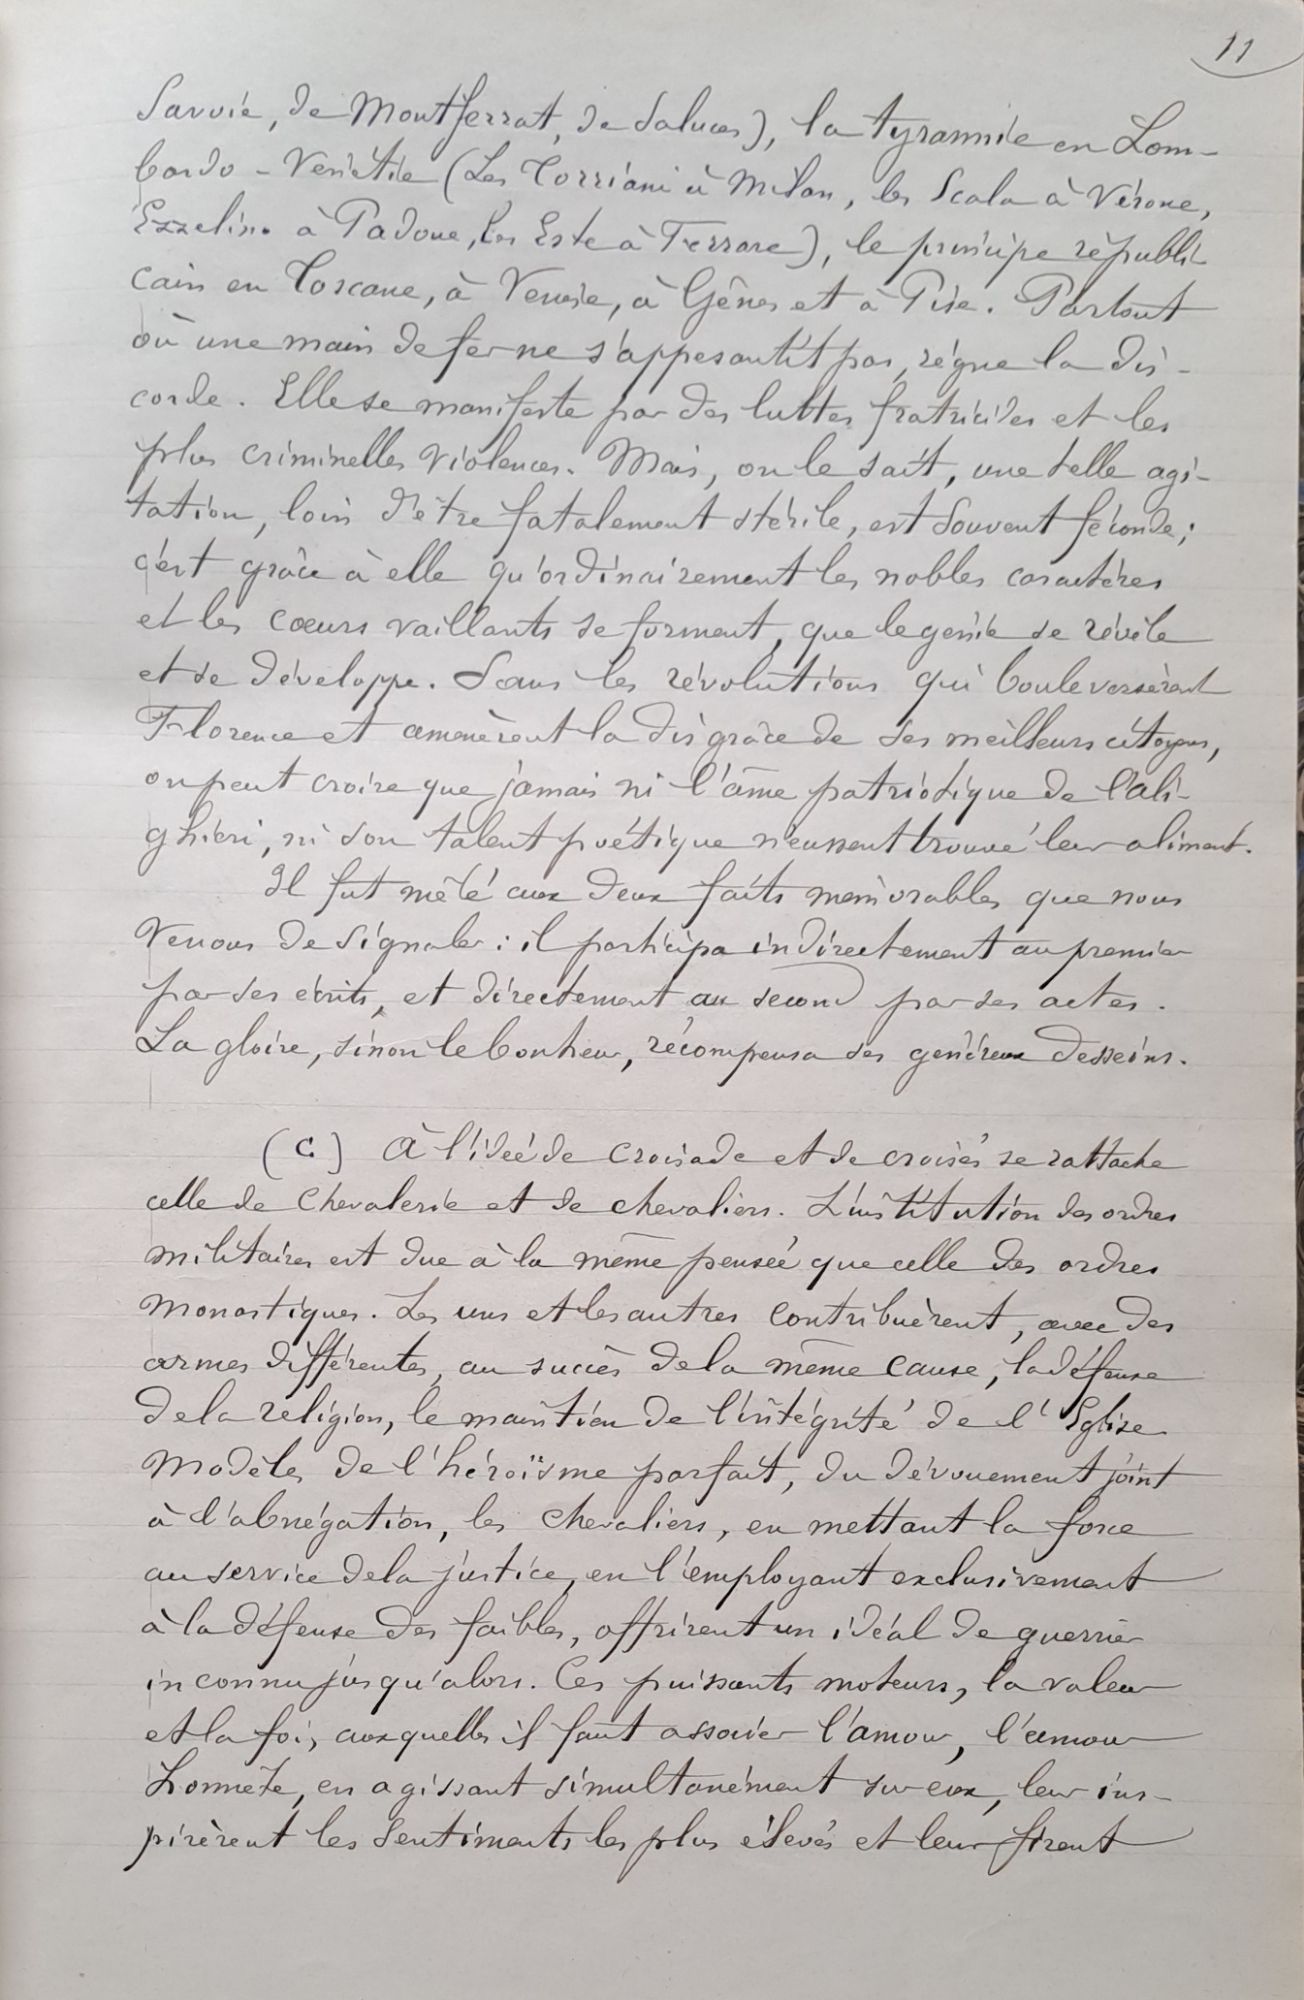 11
Savoie, de Montferrat, de Saluces), la tyrannie en Lom-
bardo-Vénétie (Les Torriani à Milan, les Scala à Vérone,
Ezzelino à Padoue, les Este à Ferrare), le principe républi
cain en Toscane, à Venise, à Gênes et à Pise. Partout
où une main de fer ne s'appesantit pas, règne la dis-
corde. Elle se manifeste par des luttes fratricides et les
plus criminelles violences. Mais, on le sait, une telle agi-
tation, loin d'être fatalement stérile, est souvent féconde;
c'est grâce à elle qu'ordinairement les nobles caractères
et les cœurs vaillants se forment, que le génie se révèle
et se développe. Sans les révolutions qui bouleversèrent
Florence et amenèrent la disgrâce de ses meilleurs citoyens,
on peut croire que jamais ni l'âme patriotique de l'Ali-
ghieri, ni son talent poétique n'eussent trouvé leur aliment.
Il fut mêlé aux deux faits mémorables que nous
venons de signaler: il participa indirectement au premier
par ses écrits, et directement au second par ses actes.
La gloire, sinon le bonheur, récompensa ses généreux desseins.
(C) À l'idée de croisade et de croisés se rattache
celle de chevalerie et de chevaliers. L'institution des ordres
militaires est due à la même pensée que celle des ordres
monastiques. Les uns et les autres contribuèrent, avec des
armes différentes, au succès de la même cause, la défense
de la religion, le maintien de l'intégrité de l'Eglise
Modèles de l'héroïsme parfait, du dévouement joint
à l'abnégation, les chevaliers, en mettant la force
au service de la justice, en l'employant exclusivement
à la défense des faibles, offrirent un idéal de guerrier
inconnu jusqu'alors. Ces puissants moteurs, la valeur
et la foi, auxquelles il faut associer l'amour, l'amour
honnête, en agissant simultanément sur eux, leur ins-
pirèrent les sentiments les plus élevés et leur firent